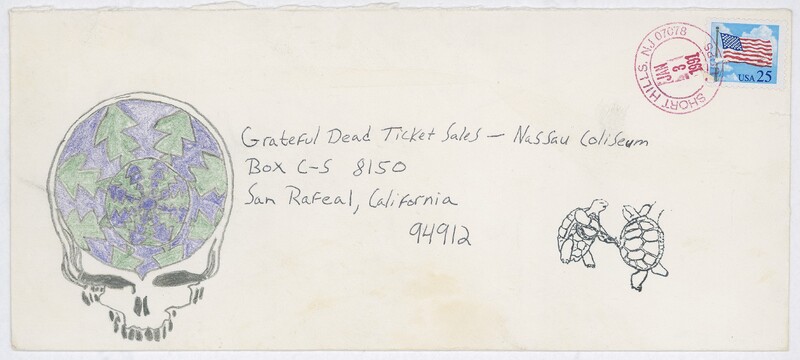 SHORT HILLS, NJ 07078
JAN
3
1991
USPS
USA 25
Grateful Dead Ticket Sales — Nassau Coliseum
Box C-S 8150
San Rafeal, California
94912